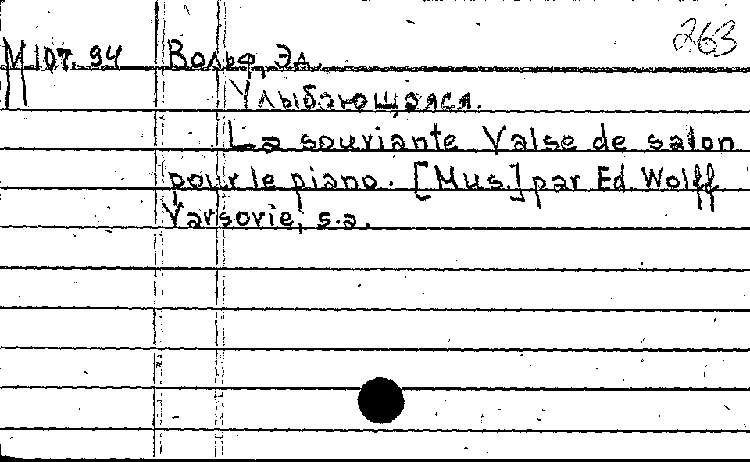 263
М 10т. 94 Вольф, Эд.
Улыбающаяся.
La souriante Valse de salon
pour le piano. [Mus.] par Ed. Wolff
Varsovie, s.a.